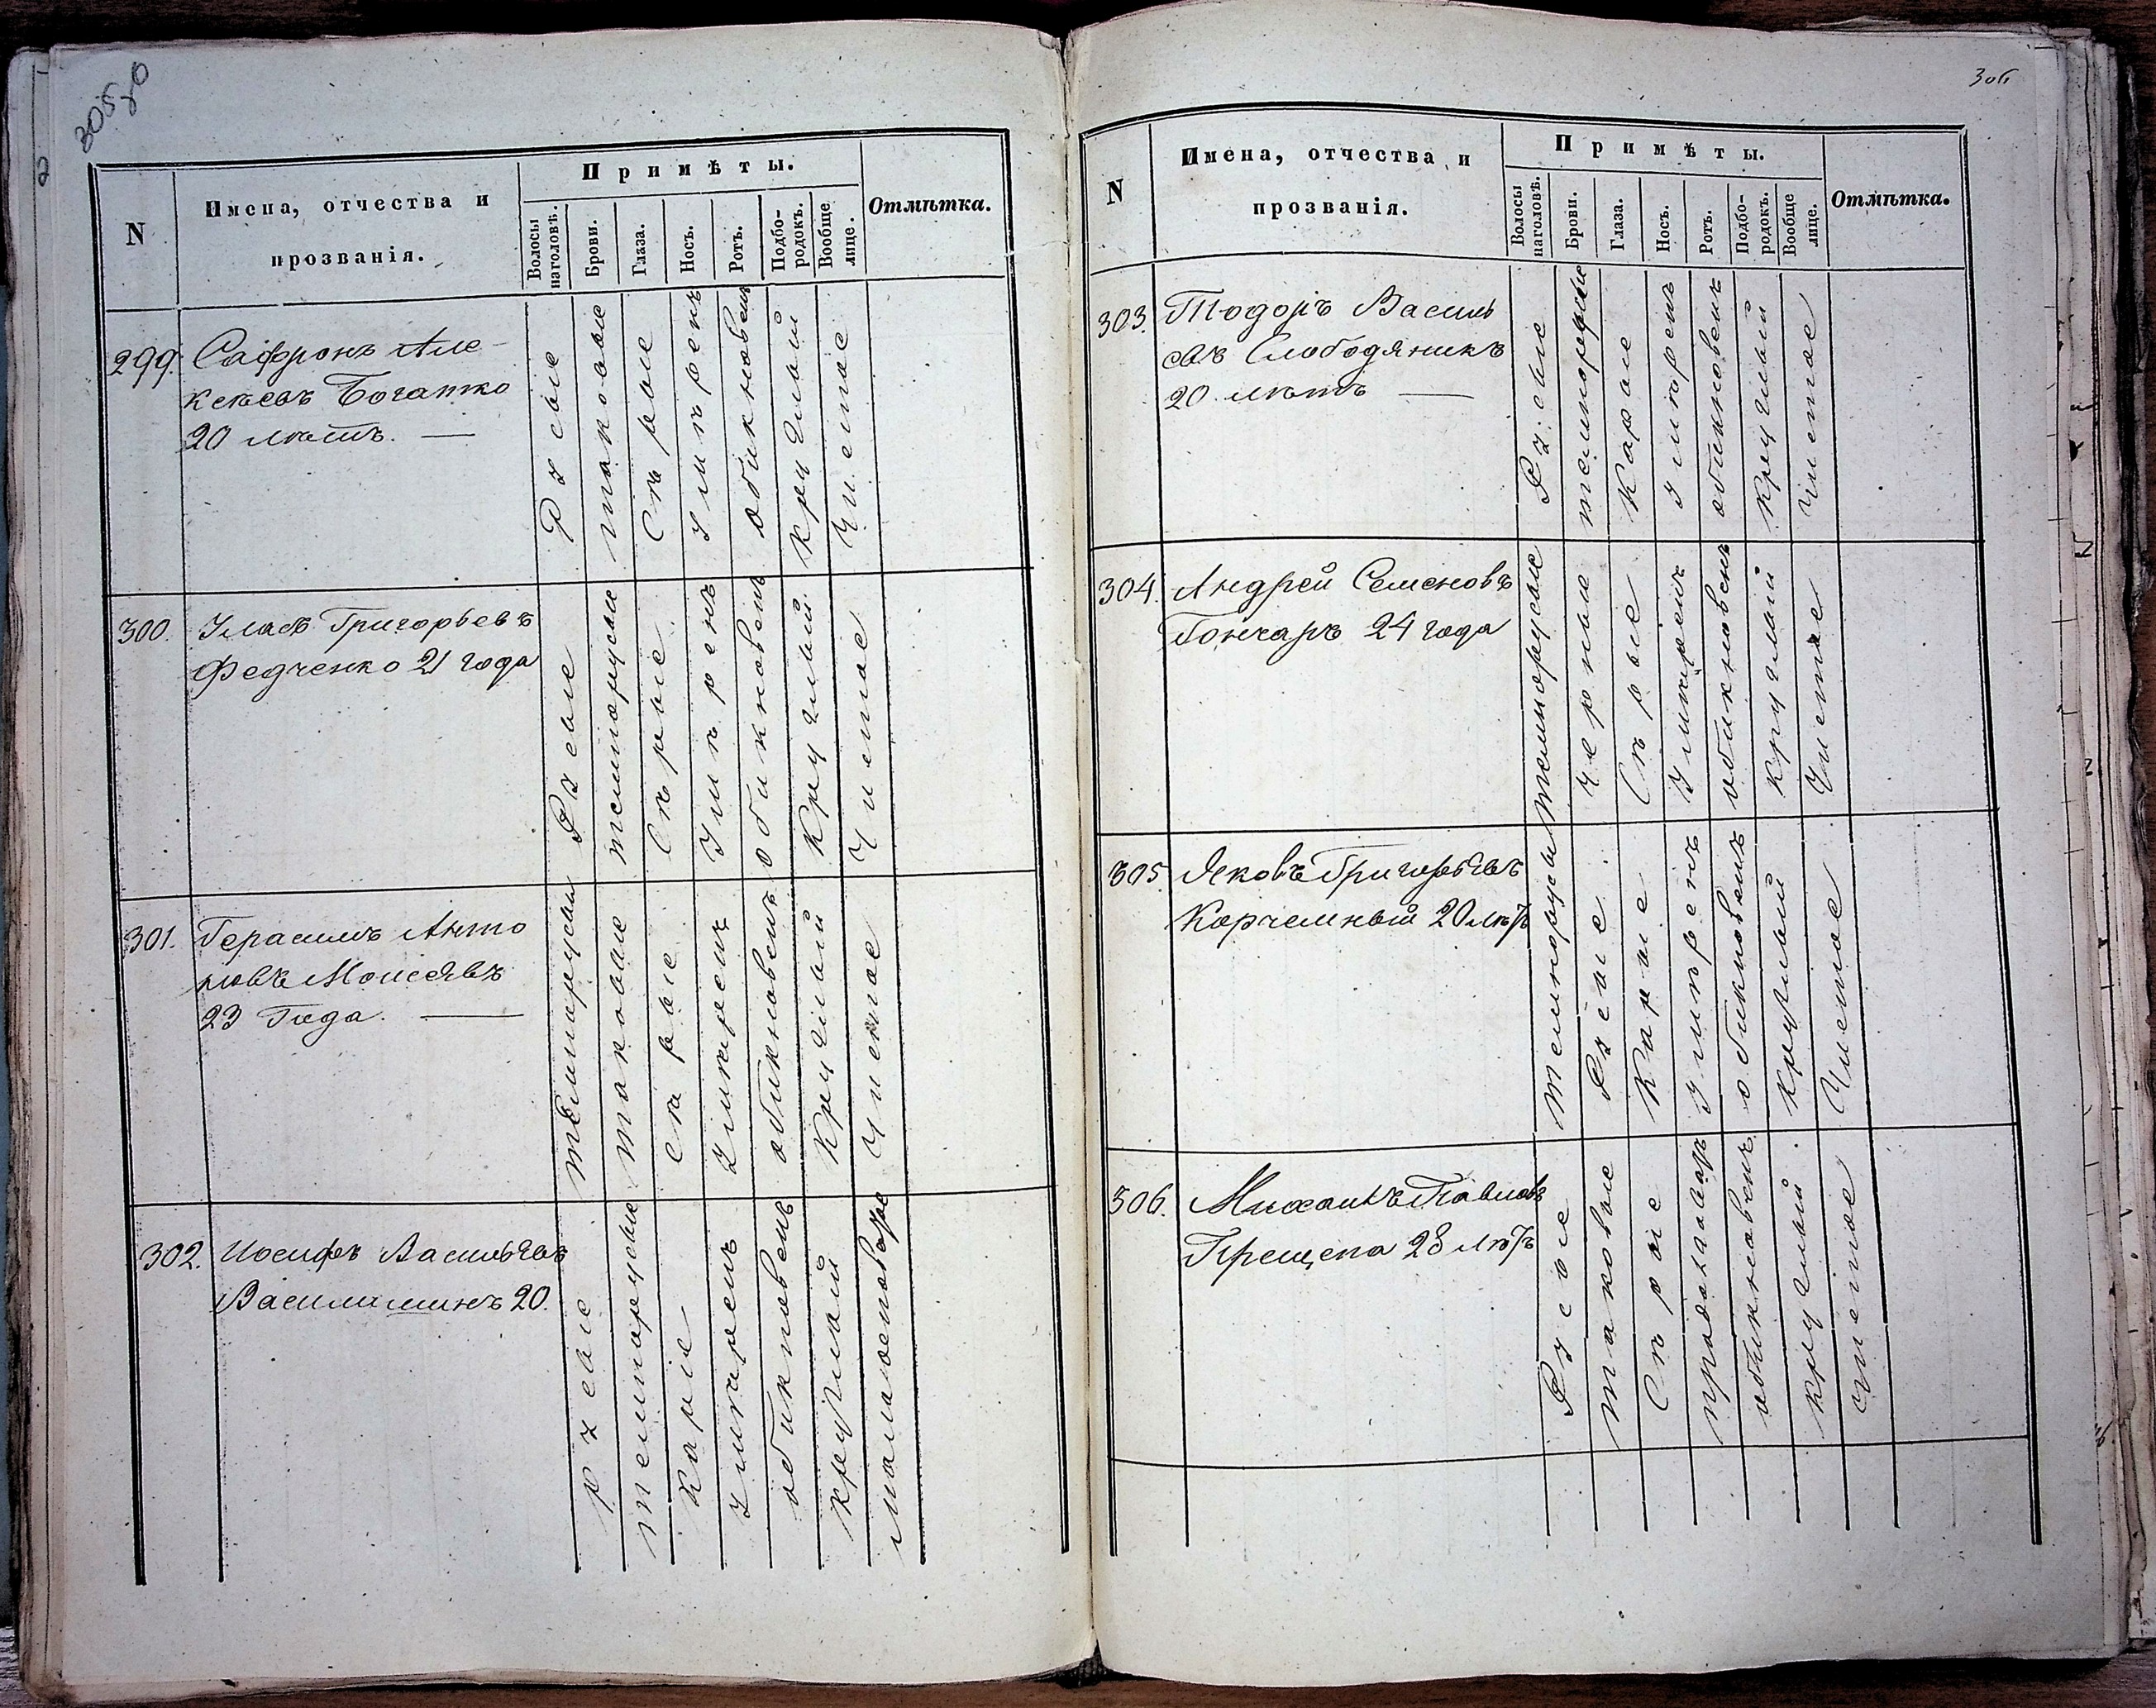 305
N
Имена, отчества и
прозванія.
Примѣты.
Волосы
наголовѣ.
Брови.
Глаза.
Носъ.
Ротъ.
Подбо-
родокъ.
Вообще
лице.
Отмѣтка.
299.
Сафронъ Але-
ксѣевъ Богатко
20 лѣтъ. —
Русые
таковые
Сѣрые
Умѣренъ
обикновенъ
круглый
Чистое
300.
Уласъ Григорьевъ
Федченко 21 года
Русые
темнорусые
Сѣрые
Умѣренъ
обикновенъ
Круглый
Чистое
301.
Герасимъ Анто
новъ Моисѣевъ
23 Года. —
темнорусы
таковые
Сѣрые
Умѣренъ
обикновенъ
Круглый
Чистое
302.
Иосифъ Васильевъ
20.
русые
темнорусые
Карые
Умѣренъ
обикновенъ
круглый
306
N
Имена, отчества и
прозванія.
Примѣты.
Волосы
наголовѣ.
Брови.
Глаза.
Носъ.
Ротъ.
Подбо-
родокъ.
Вообще
лице.
Отмѣтка.
303.
Тодоръ Василь
евъ Слободяникъ
20 лѣтъ —
Русые
темнорусые
Карые
Умѣренъ
обикновенъ
Круглый
Чистое
304.
Андрей Семеновъ
Гончаръ 24 года
темнорусые
Черные
Сѣрые
Умѣренъ
обикновенъ
круглый
Чистое
305.
Яковъ Григорьевъ
Корчемный 20 лѣтъ
темнорусы
Русые
Карые
Умѣренъ
обикновенъ
круглый
Чистое
306.
Михаилъ Павловъ
Прещепа 28 лѣтъ
Русые
таковые
Сѣрые
обикновенъ
круглый
Чистое